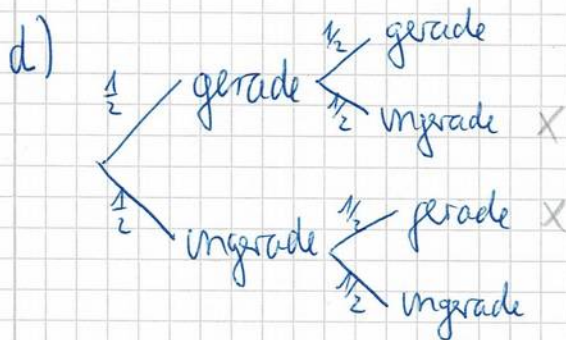 d)
1/2 gerade
1/2 gerade
1/2 ungerade X
1/2 ungerade
1/2 gerade X
1/2 ungerade